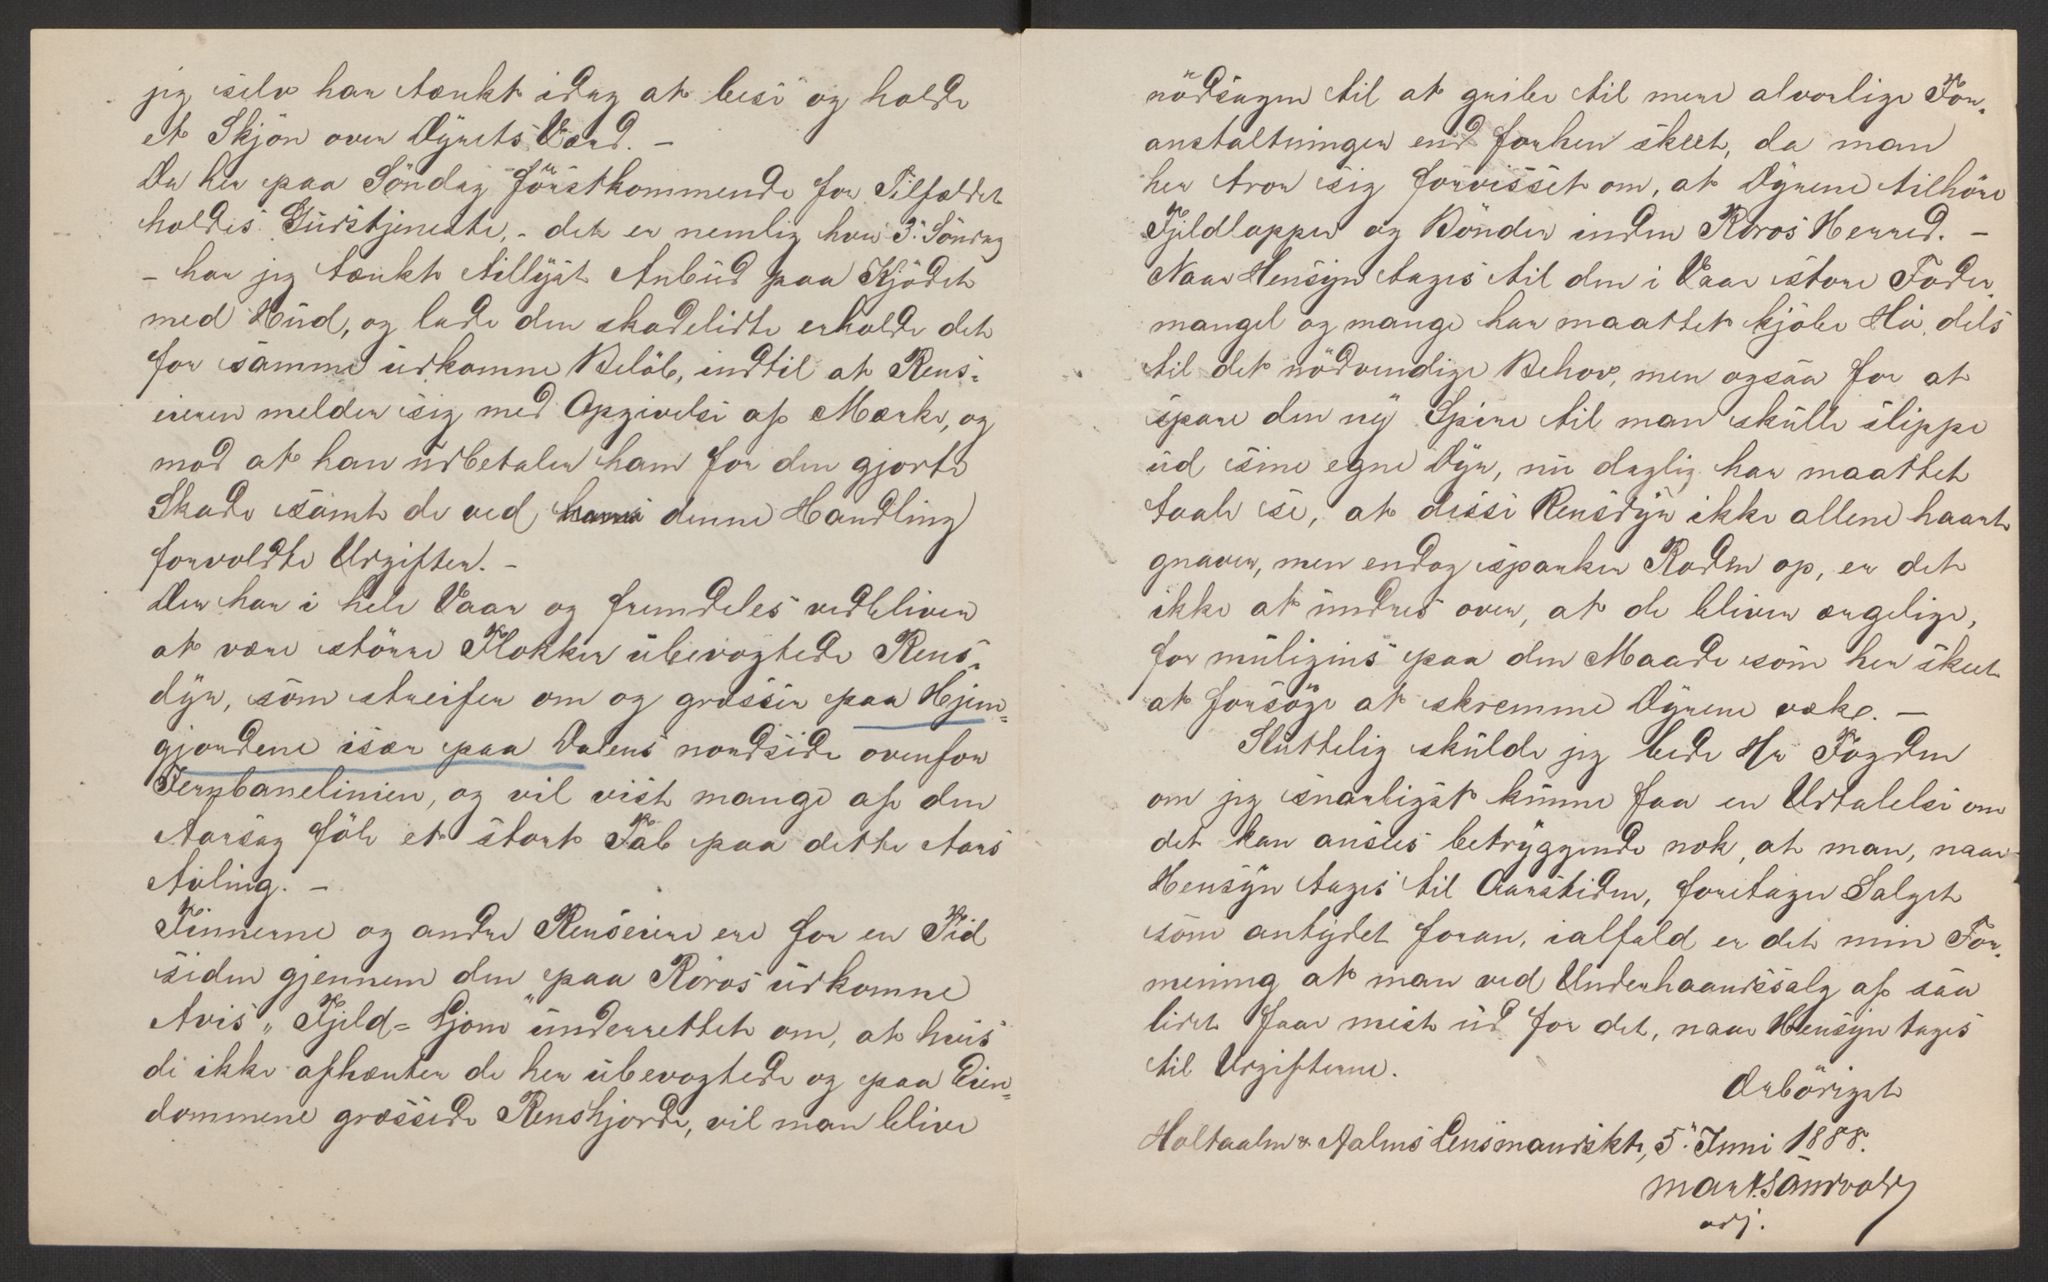 jeg selv har tænkt idag at bese og holde
et Skjön over Dyrets Værd. —
Da her paa Söndag förstkommende for Tilfældet
holdes Gudstjeneste, - det er nemlig hver 3. Söndag
- har jeg tænkt tillyst Anbud paa Kjödet
med Hud, og lade den skadelidte erholde det
for samme udkomne Belöb, indtil at Rens-
eieren melder sig med Opgivelse af Mærke, og
mod at han udbetaler ham for den gjorte
Skade samt de ved denne Handling
forvoldte Udgifter. -
Der har i hele Vaar og fremdeles vedbliver
at være större Flokker ubevogtede Rens-
dyr, som streifer om og græsser paa Hjem-
gjordene især paa Dalens nordside ovenfor
Jernbanelinien, og vil vist mange af den
Aarsag föle et stort Tab paa dette Aars
Avling. -
Finnerne og andre Renseiere ere for en Tid
siden gjennem den paa Röros udkomne
Avis „Fjeld-Ljom" underrettet om, at hvis
de ikke afhænter de her ubevogtede og paa Eien-
dommene græssede Renshjorde, vil man blive
nödsagen til at gribe til mere alvorlige For-
anstaltninger end forhen skeet, da man
her tror sig forvisset om, at Dyrene tilhöre
Fjeldlapper og Bönder inden Röros Herred. -
Naar Hensyn tages til den i Vaar store Foder-
mangel og mange har maattet kjöbe Hö, dels
til det nödvendige Behov, men ogsaa for at
spare den ny Spire til man skulle slippe
ud sine egne Dyr, nu daglig har maattet
taale se, at disse Rensdyr ikke allene haart
gnaver, men endog sparker Roden op, er det
ikke at undres over, at de bliver ærgelige,
for muligens paa den Maade som her skeet
at forsöge at skremme Dyrene væk. -
Sluttelig skulde jeg bede Hr Fogden
om jeg snarligst kunne faa en Udtalelse om
det kan ansees betryggende nok, at man, naar
Hensyn tages til Aarstiden, foretager Salget
som antydet foran, ialfald er det min For-
mening at man ved Underhaandssalg af saa
lidet faar mest ud for det, naar Hensyn tages
til Udgifterne.
Ærbödigst
Holtaalen & Aalens Lensmandskt, 5. Juni 1888.
Mart. Sandvold